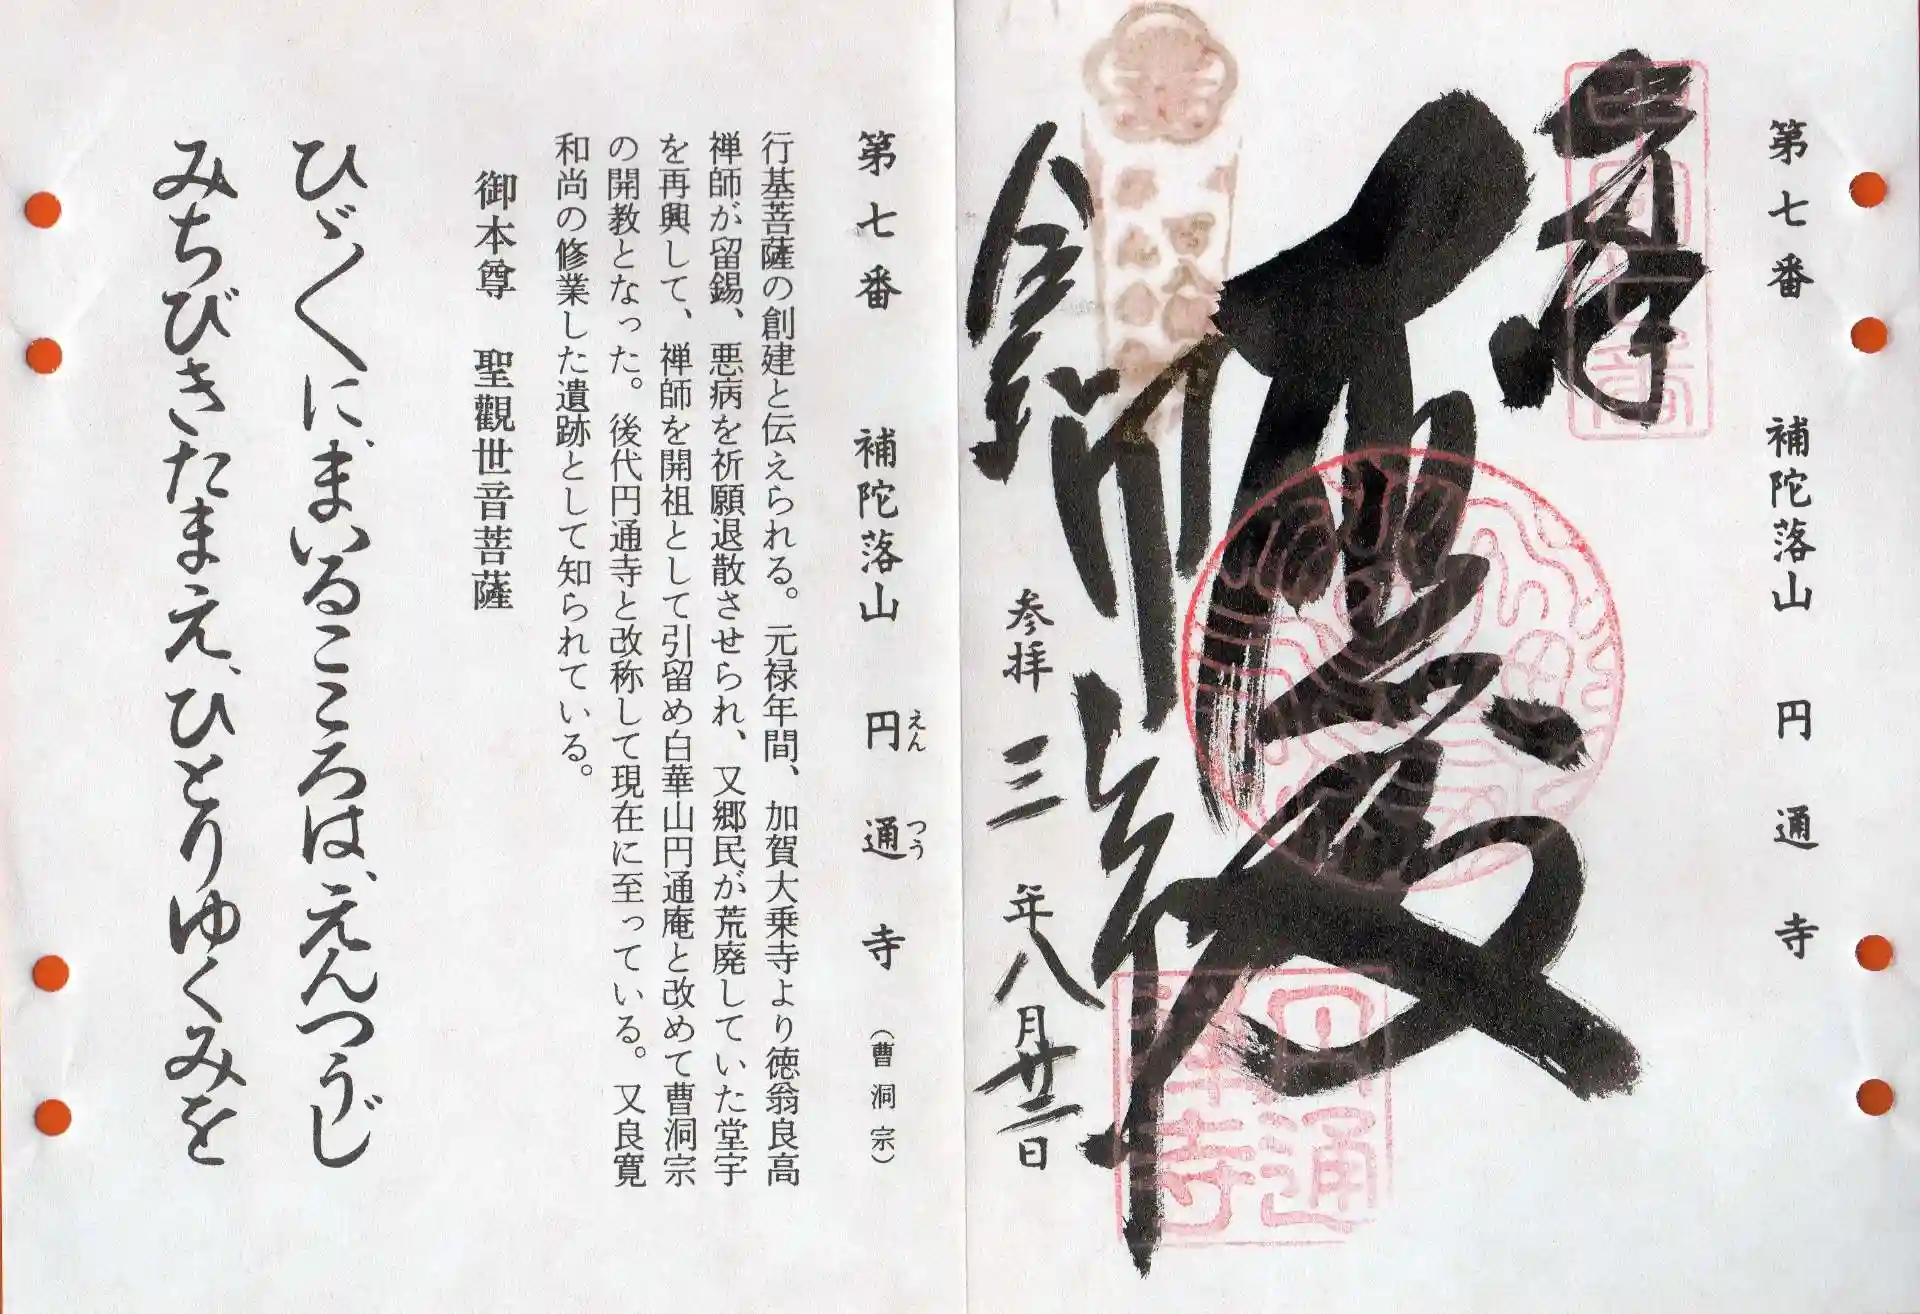 第七番 補陀落山 円通寺
奉拝
中国七番
円通禅寺
参拝 三年八月廿二日
第七番 補陀落山 円通寺 (曹洞宗)
えん つう
行基菩薩の創建と伝えられる。元禄年間、加賀大乗寺より徳翁良高
禅師が留錫、悪病を祈願退散させられ、又郷民が荒廃していた堂宇
を再興して、禅師を開祖として引留め白華山円通庵と改めて曹洞宗
の開教となった。後代円通寺と改称して現在に至っている。又良寛
和尚の修業した遺跡として知られている。
御本尊 聖觀世音菩薩
ひゞ〱に、まいるこころは、えんつうじ
みちびきたまえ、ひとりゆくみを